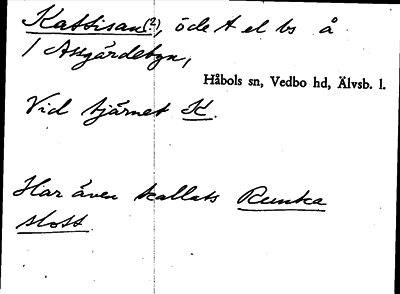 Kattisan(?), öde t el bs å
/ Assgärdebyn,
Håbols sn, Vedbo hd, Älvsb. l.
Vid tjärnet K.
Har även kallats Runka
slott.